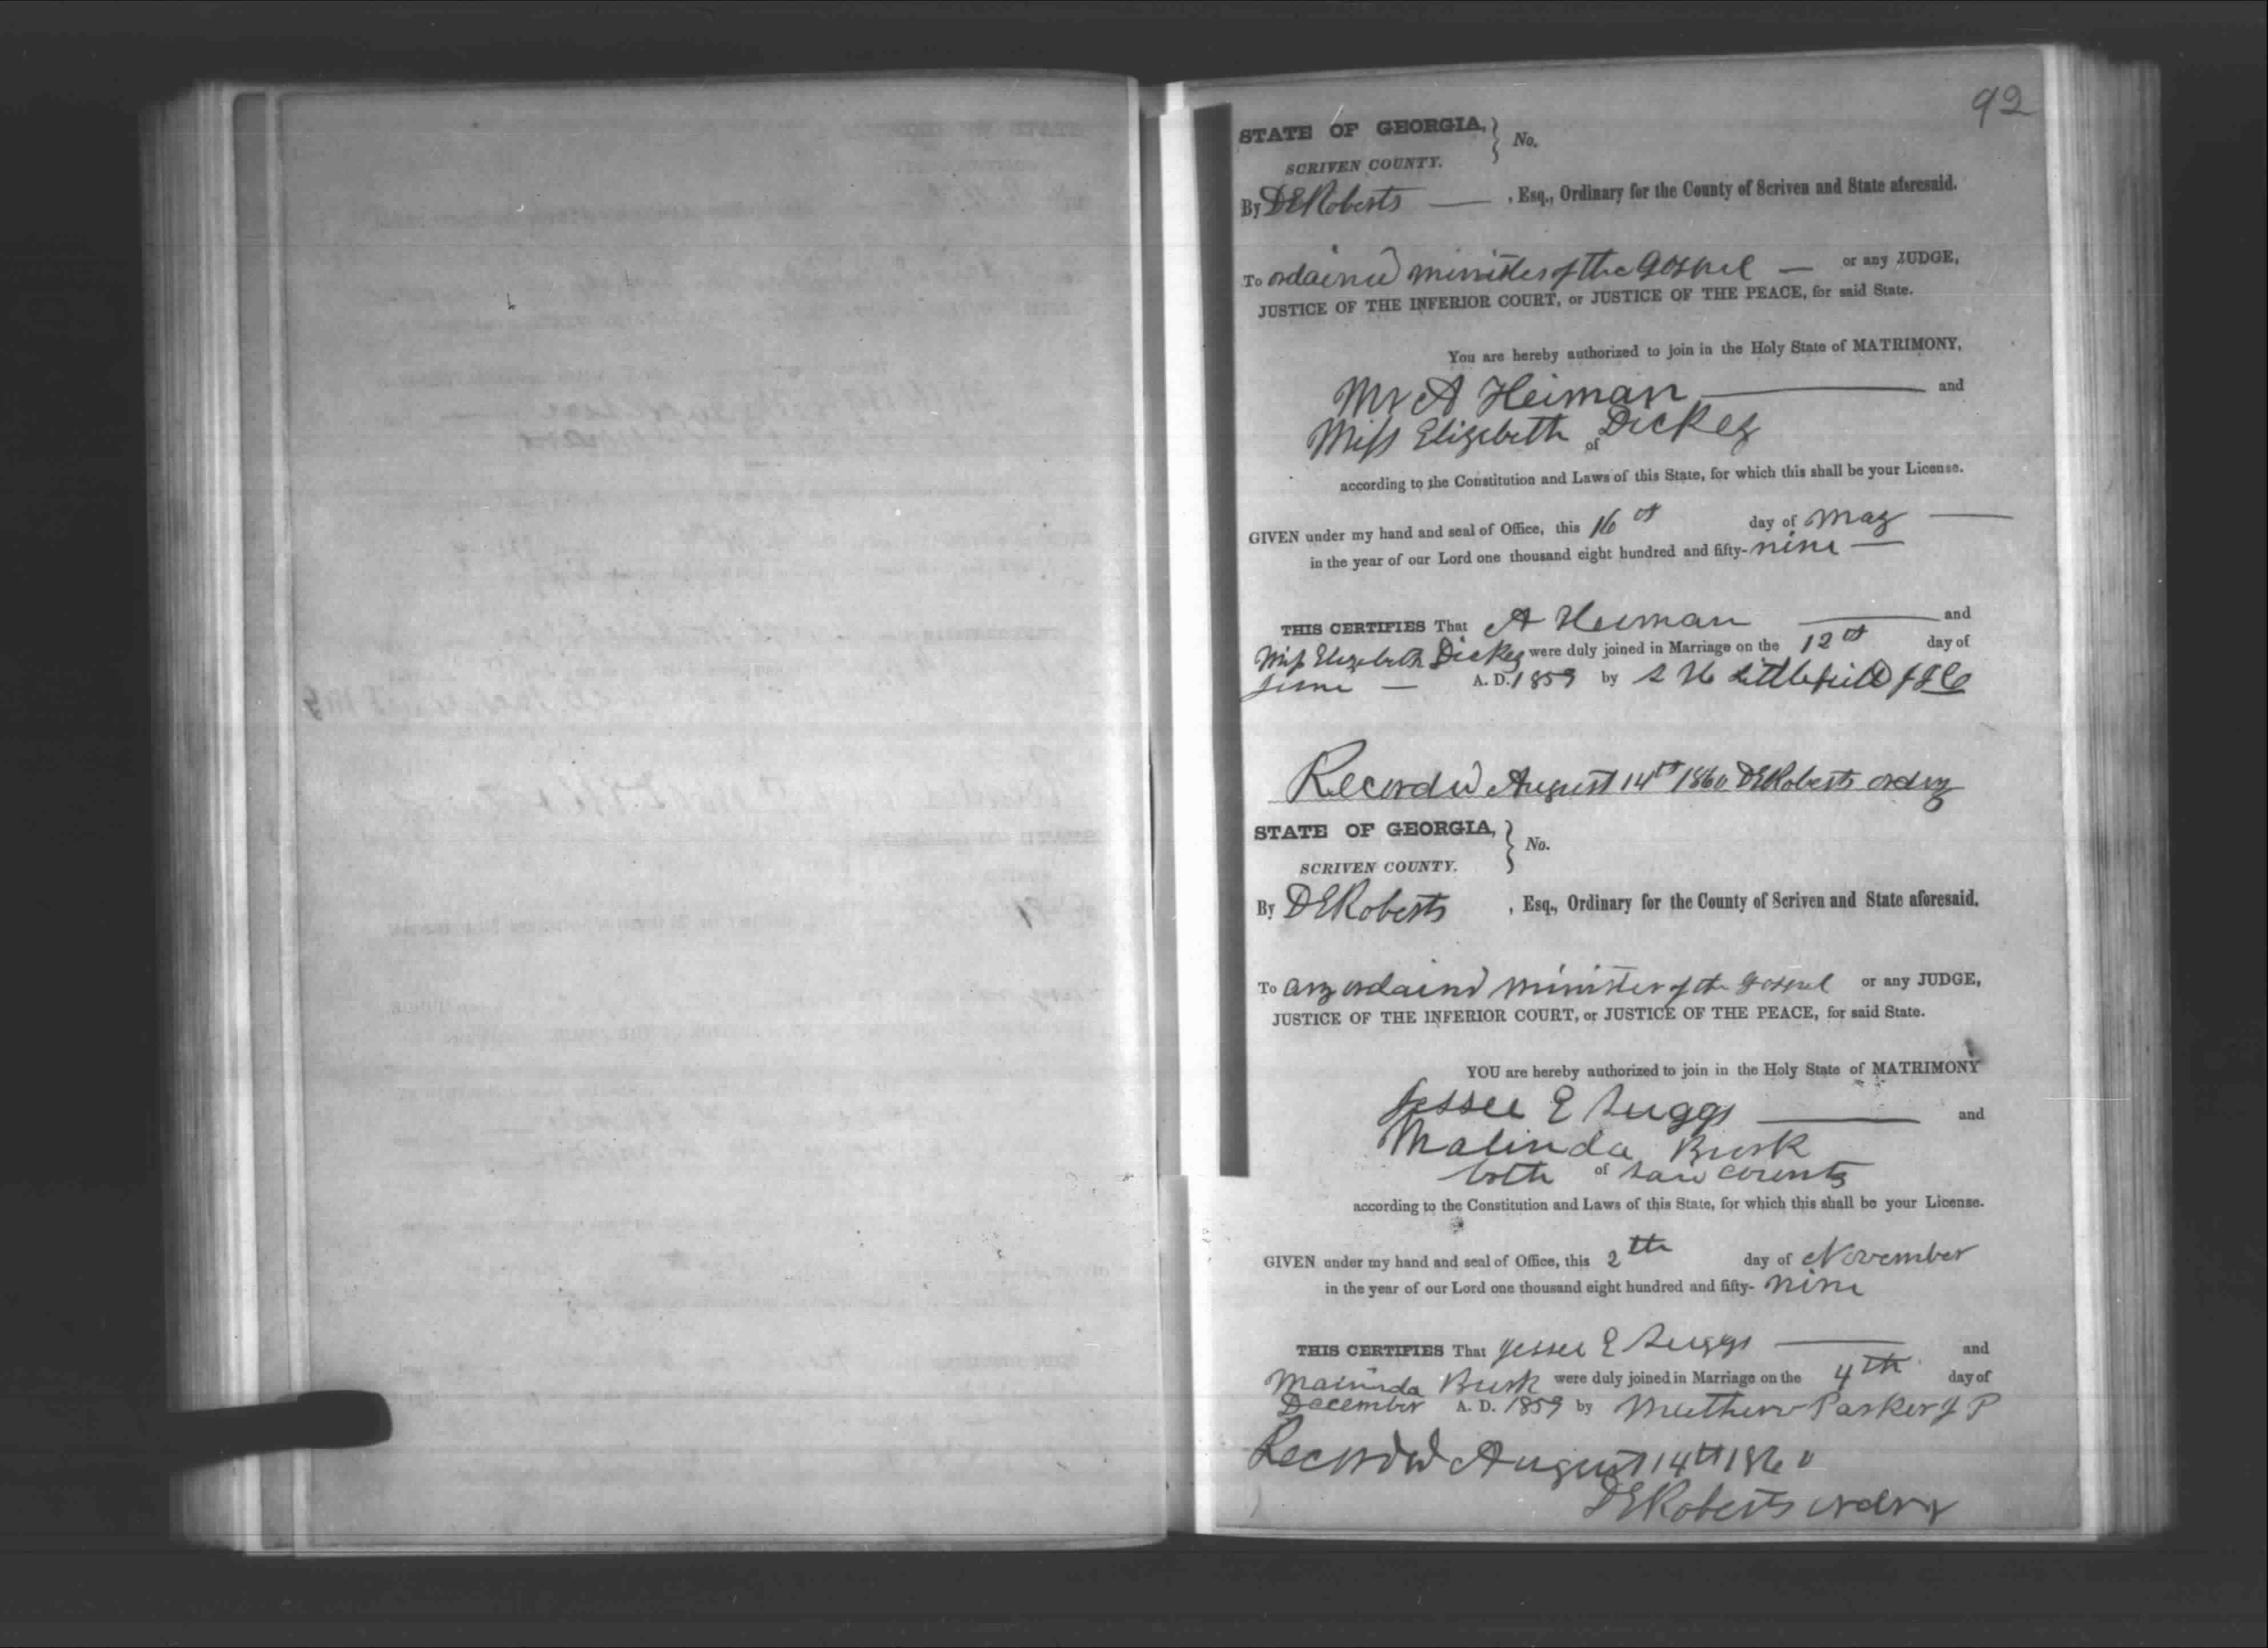 92
STATE OF GEORGIA, } No.
SCRIVEN COUNTY.
By D E Roberts — , Esq., Ordinary for the County of Scriven and State aforesaid.
To ordained minister of the Gospel — or any JUDGE,
JUSTICE OF THE INFERIOR COURT, or JUSTICE OF THE PEACE, for said State.
You are hereby authorized to join in the Holy State of MATRIMONY,
Mr A Heiman — and
Miss Elizebeth Dickey
of
according to the Constitution and Laws of this State, for which this shall be your License.
GIVEN under my hand and seal of Office, this 16th day of May —
in the year of our Lord one thousand eight hundred and fifty- nine —
THIS CERTIFIES That A Heiman — and
Miss Elizebeth Dickey were duly joined in Marriage on the 12th day of
June — A. D. 1859 by S H Littlefield J I C
Recorded August 14th 1860 D E Roberts ordny
STATE OF GEORGIA, } No.
SCRIVEN COUNTY.
By D E Roberts , Esq., Ordinary for the County of Scriven and State aforesaid.
To any ordaind minister of the Gospel or any JUDGE,
JUSTICE OF THE INFERIOR COURT, or JUSTICE OF THE PEACE, for said State.
YOU are hereby authorized to join in the Holy State of MATRIMONY
Jessee E Suggs — and
Malinda Burk
both of said county
according to the Constitution and Laws of this State, for which this shall be your License.
GIVEN under my hand and seal of Office, this 2th day of November
in the year of our Lord one thousand eight hundred and fifty- nine
THIS CERTIFIES That Jessee E Suggs — and
Malinda Burk were duly joined in Marriage on the 4th day of
December A. D. 1859 by Parker J P
Recorded August 14th 1860
D E Roberts ordny